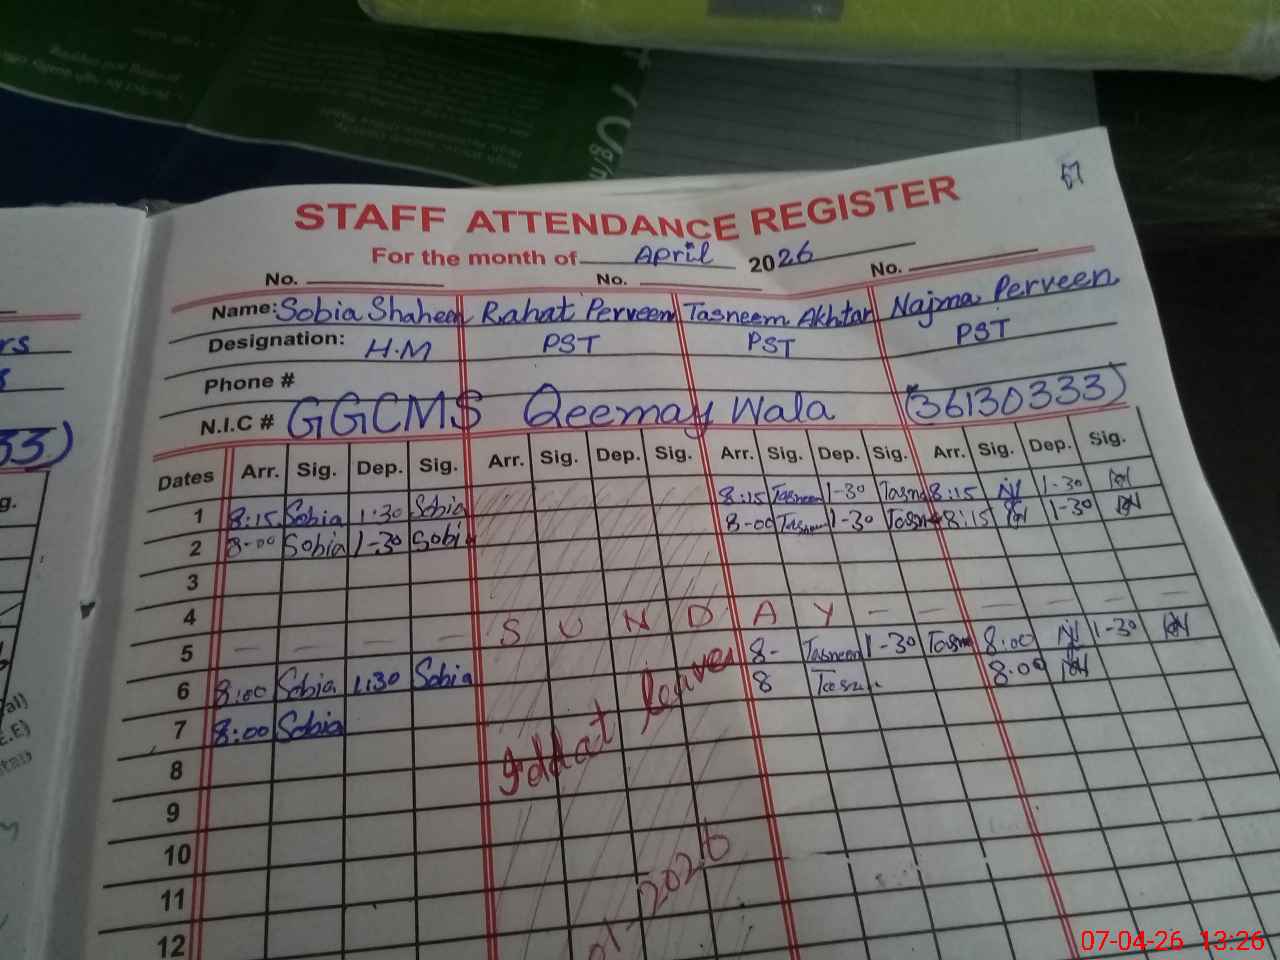 57
STAFF ATTENDANCE REGISTER
For the month of April 2026
No. No. No.
Name: Sobia Shaheen Rahat Perveen Tasneem Akhtar Najma Perveen
Designation: H.M PST PST PST
Phone #
N.I.C # GGCMS Qeemay Wala (36130333)
Dates Arr. Sig. Dep. Sig. Arr. Sig. Dep. Sig. Arr. Sig. Dep. Sig. Arr. Sig. Dep. Sig.
1 8:15 Sobia 1:30 Sobia 8:15 Tasneem 1-30 8:15 1-30
2 8-00 Sobia 1-30 Sobia 8-00 1-30 8:15 1-30
3
4
5 — — — — S U N D A Y — — — — — —
6 8:00 Sobia 1:30 Sobia 8- Tasneem 1-30 8:00 1-30
7 8:00 Sobia 8 8:00
Iddat leaves
8
9
10
11
12
2026
33)
g.
07-04-26 13:26